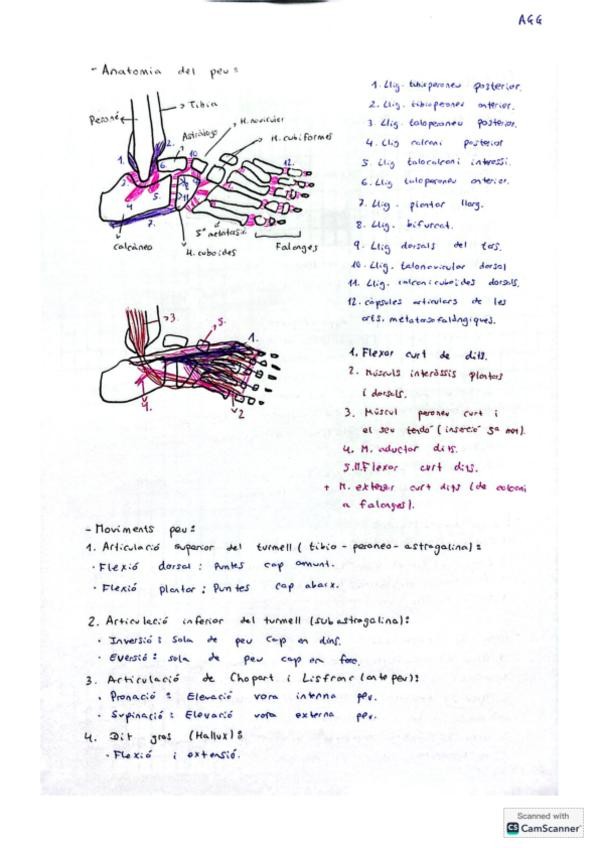 AGG
- Anatomia del peu:
Peroné
Tibia
Astràlogo
H. navicular
H. cubiformes
1.
2.
3.
4.
5.
6.
7.
8.
9.
10.
11.
12.
calcáneo
H. cuboides
5º metatarsià
Falanges
1. Llig. tibioperoneu posterior.
2. Llig. tibioperoneu anterior.
3. Llig. taloperoneu posterior.
4. Llig calcani posterior
5. Llig talocalcani interossi.
6. Llig taloperoneu anterior.
7. Llig. plantar llarg.
8. Llig. bifurcat.
9. Llig dorsals del tars.
10. Llig. talonavicular dorsal
11. Llig. calcani cuboides dorsals.
12. càpsules articulars de les
arts. metatarsofalàngiques.
3.
5.
1.
4.
2
1. Flexor curt de dits.
2. Músculs interòssis plantars
i dorsals.
3. Múscul peroneu curt i
el seu tendó (inserció 5º met).
4. M. aductor dits.
5. M. Flexor curt dits.
+ M. extensor curt dits (de calcani
a falanges).
- Moviments peu:
1. Articulació superior del turmell (tibio-peroneo-astragalina):
· Flexió dorsal: Puntes cap amunt.
· Flexió plantar: Puntes cap abaix.
2. Articulació inferior del turmell (subastragalina):
· Inversió: Sola de peu cap en dins.
· Eversió: sola de peu cap en fora.
3. Articulació de Chopart i Lisfranc (antepeu):
· Pronació: Elevació vora interna peu.
· Supinació: Elevació vora externa peu.
4. Dit gros (Hallux):
· Flexió i extensió.
Scanned with
CS CamScanner